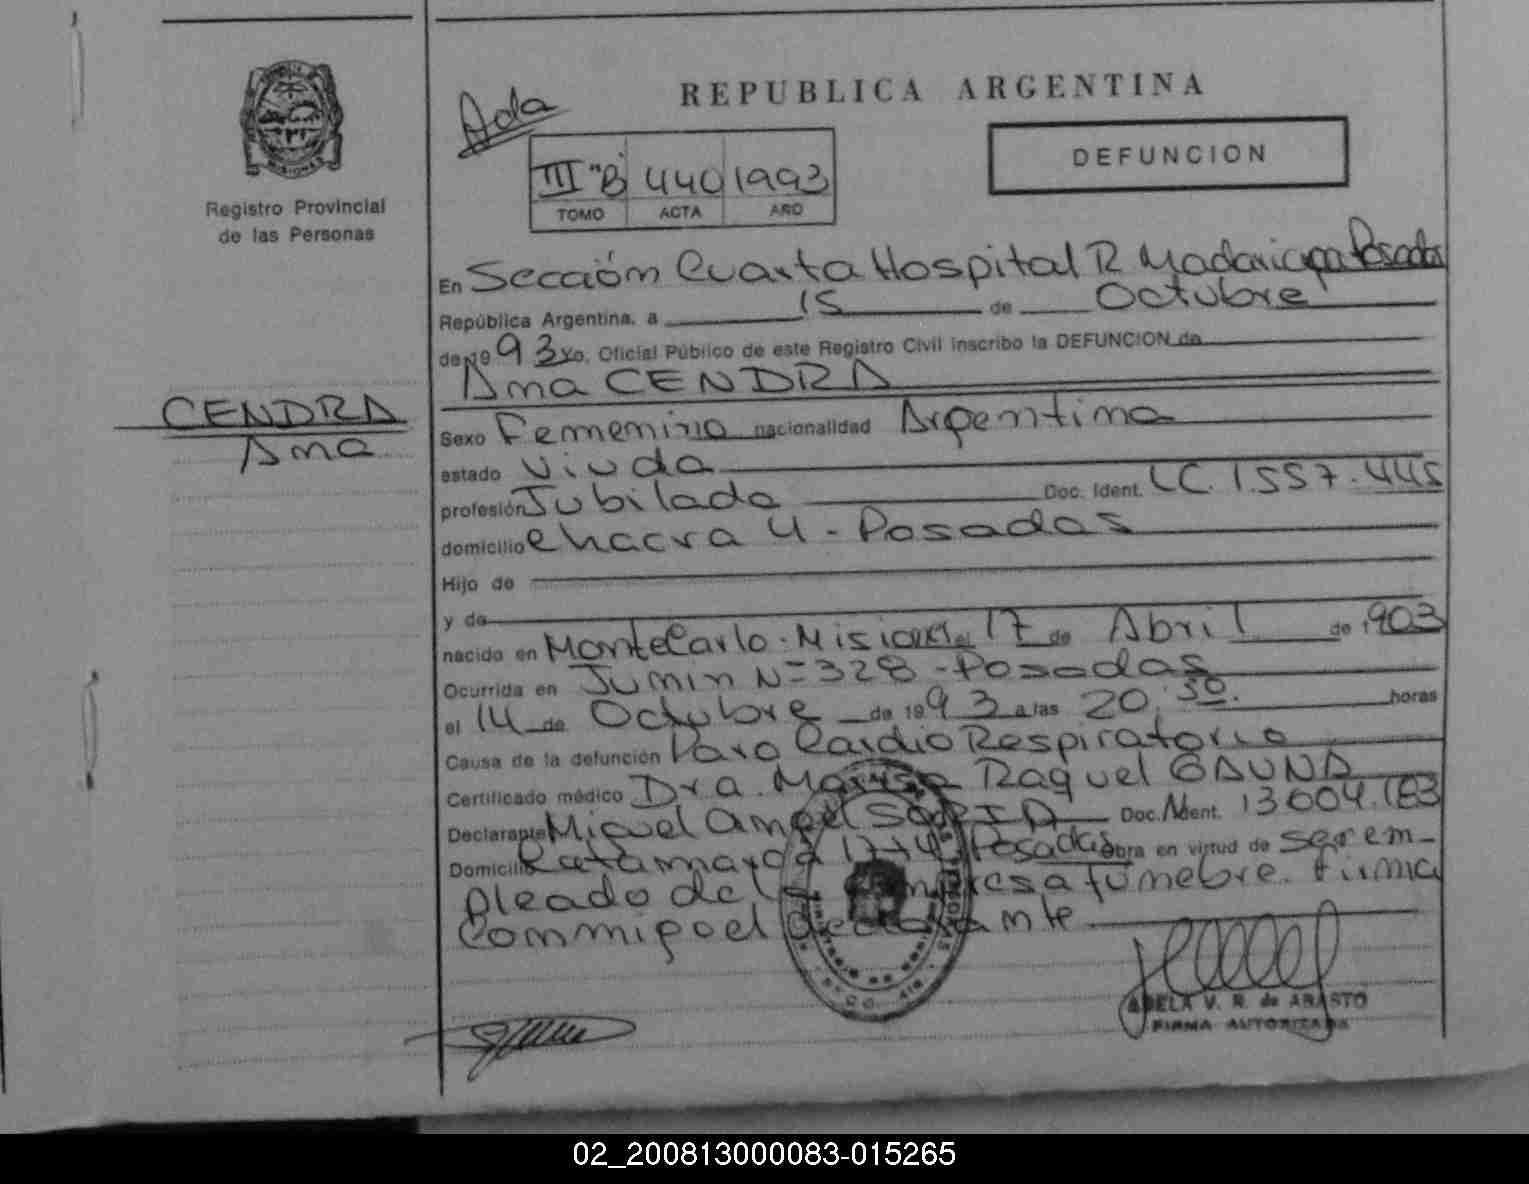 REPUBLICA ARGENTINA
Ada
DEFUNCION
III "B" 440 1993
TOMO ACTA AÑO
Registro Provincial
de las Personas
En Sección Cuarta Hospital R Madariaga Posadas
República Argentina, a 15 de Octubre
de 1993 Yo, Oficial Público de este Registro Civil inscribo la DEFUNCION de
Ana CENDRA
CENDRA
Ana
Sexo Femenino nacionalidad Argentina
estado Viuda
profesión Jubilada Doc. Ident. LC. 1.557.445
domicilio Chacra 4 - Posadas
Hijo de
y de
nacido en MonteCarlo - Misiones el 17 de Abril de 1903
Ocurrida en Junin Nº 328 - Posadas
el 14 de Octubre de 1993 a las 20:30. horas
Causa de la defunción Paro Cardio Respiratorio
Certificado médico Dra. Marisa Raquel GAUNA
Declarante Miguel Angel Doc. Ident. 13.004.183
Domicilio Catamarca Posadas obra en virtud de ser em-
pleado de la empresa fúnebre. Firma
Conmigo el declarante
ADELA V. R. de ARASTO
FIRMA AUTORIZADA
02_200813000083-015265